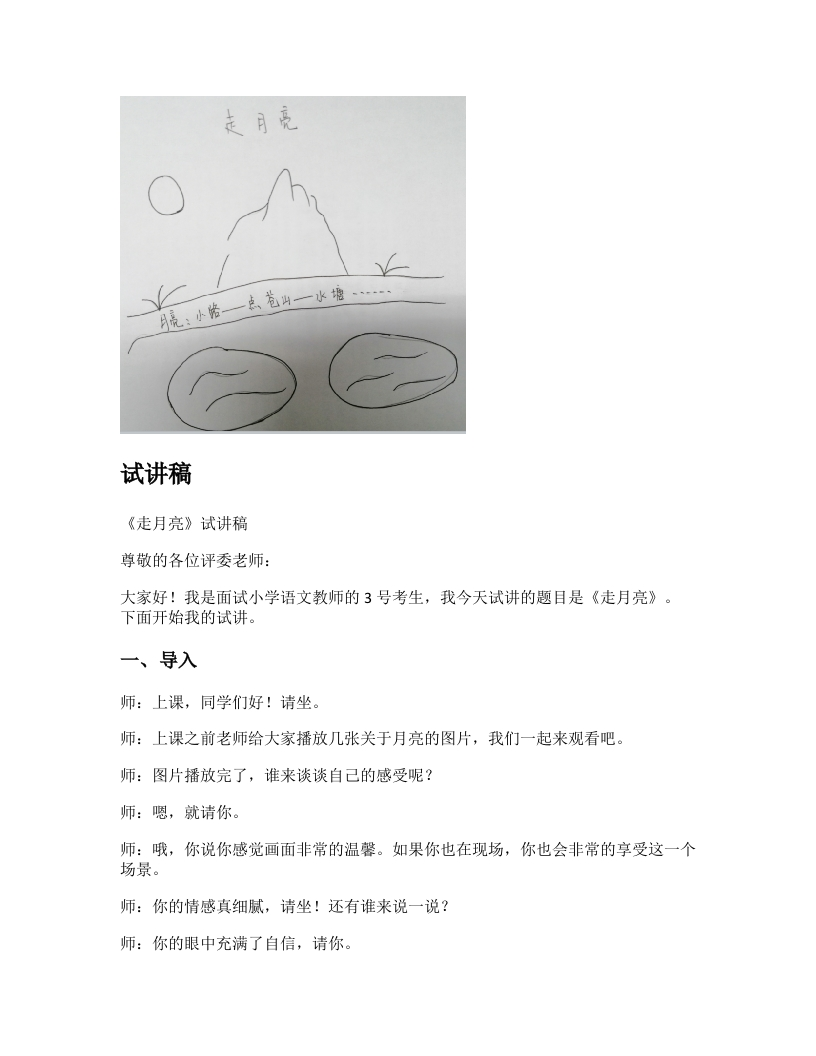 走月亮
月亮：小路——点苍山——水塘……
试讲稿
《走月亮》试讲稿
尊敬的各位评委老师：
大家好！我是面试小学语文教师的 3 号考生，我今天试讲的题目是《走月亮》。
下面开始我的试讲。
一、导入
师：上课，同学们好！请坐。
师：上课之前老师给大家播放几张关于月亮的图片，我们一起来观看吧。
师：图片播放完了，谁来谈谈自己的感受呢？
师：嗯，就请你。
师：哦，你说你感觉画面非常的温馨。如果你也在现场，你也会非常的享受这一个
场景。
师：你的情感真细腻，请坐！还有谁来说一说？
师：你的眼中充满了自信，请你。